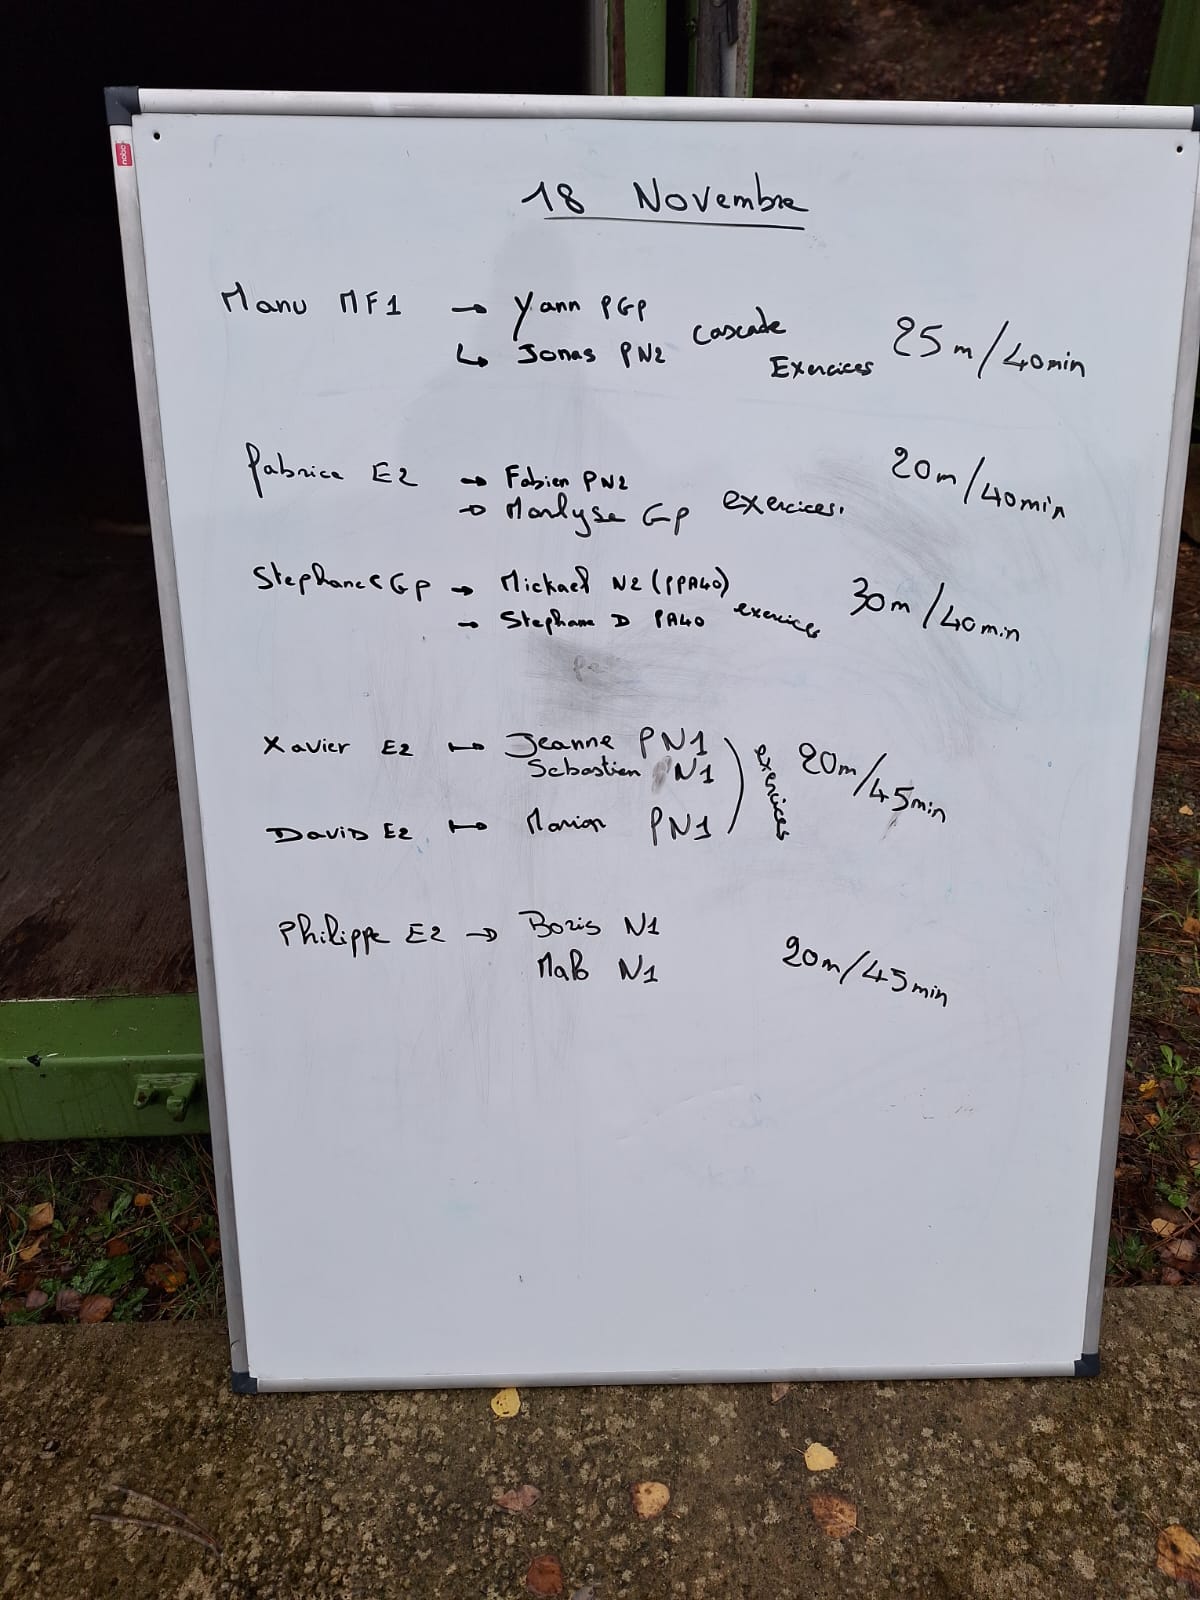 nobo
18 Novembre
Manu MF1 → Yann PGP
↳ Jonas PN2 Cascade Exercices 25m/40min
Fabrice E2 → Fabien PN2 20m/40min
→ Marlyse GP exercices.
Stephane GP → Mickael N2 (PPA40) 30m/40min
→ Stephane D PA40 exercices
Xavier E2 → Jeanne PN1
Sebastien N1 exercices 20m/45min
David E2 → Marion PN1
Philippe E2 → Boris N1
N1 20m/45min